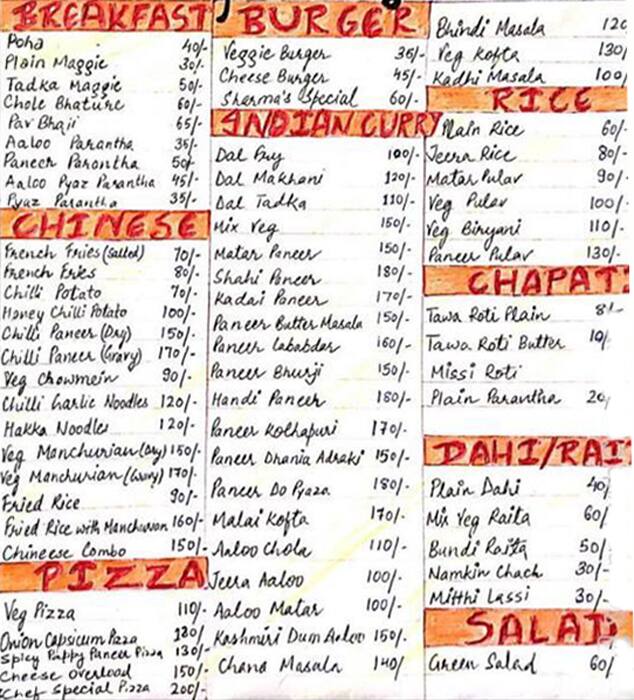 BREAKFAST
Poha 40/-
Plain Maggie 30/-
Tadka Maggie 50/-
Chole Bhature 60/-
Pav Bhaji 65/-
Aaloo Parantha 35/-
Paneer Parontha 50/-
Aaloo Pyaz Parantha 45/-
Pyaz Parantha 35/-
CHINESE
French Fries (Salted) 70/-
French Fries 80/-
Chilli Potato 70/-
Honey Chilli Potato 100/-
Chilli Paneer (Dry) 150/-
Chilli Paneer (Gravy) 170/-
Veg Chowmein 90/-
Chilli Garlic Noodles 120/-
Hakka Noodles 120/-
Veg Manchurian (Dry) 150/-
Veg Manchurian (Gravy) 170/-
Fried Rice 90/-
Fried Rice with Manchurian 160/-
Chineese Combo 150/-
PIZZA
Veg Pizza 110/-
Onion Capsicum Pizza 120/
Spicy Puppy Paneer Pizza 130/-
Cheese Overload 150/-
Chef Special Pizza 200/-
BURGER
Veggie Burger 35/-
Cheese Burger 45/-
Sharma's Special 60/-
INDIAN CURRY
Dal Fry 100/-
Dal Makhani 120/-
Dal Tadka 110/-
Mix Veg 150/-
Matar Paneer 150/-
Shahi Paneer 180/-
Kadai Paneer 170/-
Paneer Butter Masala 150/-
Paneer Lababdar 160/-
Paneer Bhurji 150/-
Handi Paneer 180/-
Paneer Kolhapuri 170/-
Paneer Dhania Adraki 150/-
Paneer Do Pyaza 180/-
Malai Kofta 170/-
Aaloo Chola 110/-
Jeera Aaloo 100/-
Aaloo Matar 100/-
Kashmiri Dum Aaloo 150/-
Chana Masala 140/
Bhindi Masala 120
Veg Kofta 130/
Kadhi Masala 100/
RICE
Plain Rice 60/-
Jeera Rice 80/-
Matar Pulav 90/-
Veg Pulav 100/-
Veg Biryani 110/-
Paneer Pulav 130/-
CHAPATI
Tawa Roti Plain 8/-
Tawa Roti Butter 10/
Missi Roti
Plain Parantha 20/
DAHI/RAI
Plain Dahi 40/
Mix Veg Raita 60/
Bundi Raita 50/
Namkin Chach 30/-
Mitthi Lassi 30/-
SALAD
Green Salad 60/